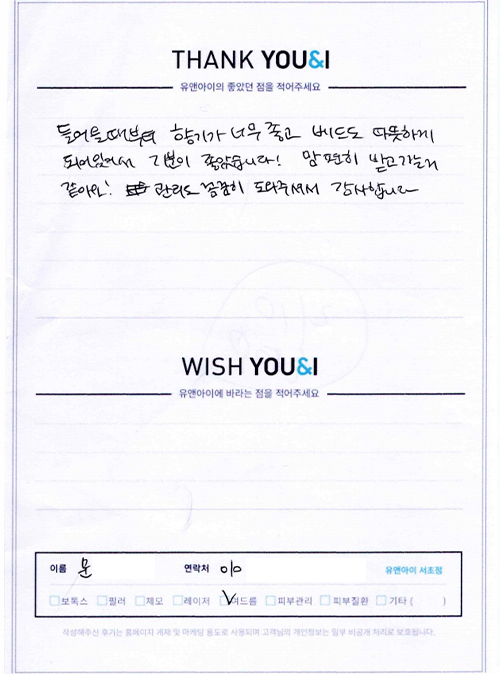 THANK YOU&I
유앤아이의 좋았던 점을 적어주세요
들어올때부터 향기가 너무 좋고 베드도 따뜻하게
되어있어서 기분이 좋았습니다! 맘 편히 받고가는거
같아요! 관리도 꼼꼼히 도와주셔서 감사합니다
WISH YOU&I
유앤아이에 바라는 점을 적어주세요
이름 문 연락처 010 유앤아이 서초점
보톡스 필러 제모 레이저 여드름 피부관리 피부질환 기타 ( )
작성해주신 후기는 홈페이지 게재 및 마케팅 용도로 사용되며 고객님의 개인정보는 일부 비공개 처리로 보호됩니다.